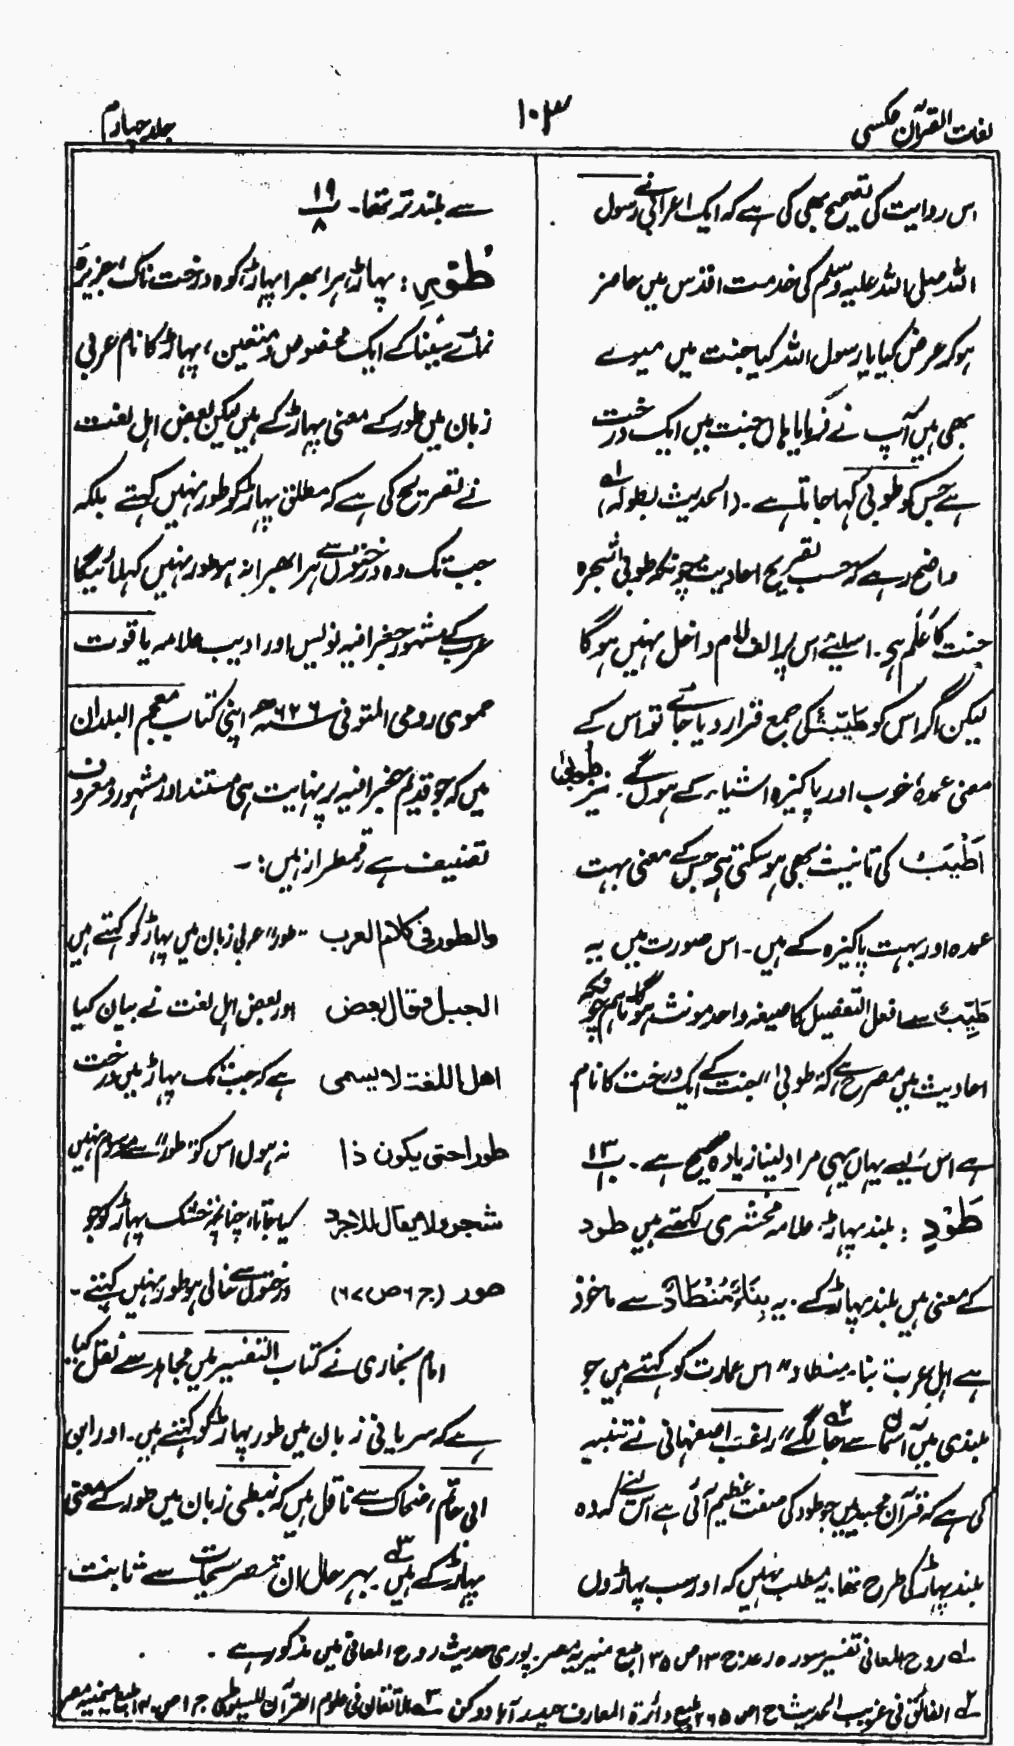 لغت القرآن عکسی
۱۰۳
جلد چہارم
اس روایت کی تصحیح بھی کی ہے کہ ایک اعرابی نے رسول
اللہ صلی اللہ علیہ وسلم کی خدمت اقدس میں حاضر
ہو کر عرض کیا یا رسول اللہ کیا جنت میں میوے
بھی ہیں آپ نے فرمایا ہاں جنت میں ایک درخت
ہے جس کو طوبیٰ کہا جاتا ہے۔ (الحدیث بطولہ) لہ
واضح رہے کہ حسب تصریح احادیث چونکہ طوبیٰ شجرہ
جنت کا عَلَم ہی۔ اسلئے اس پر الف لام داخل نہیں ہوگا
لیکن اگر اس کو طَیِّبَۃٌ کی جمع قرار دیا جائے تو اس کے
معنی عمدہ خوب اور پاکیزہ اشیاء کے ہوں گے۔ نیز طوبیٰ
اَطْیَبُ کی تانیث بھی ہو سکتی ہی جس کے معنی بہت
عمدہ اور بہت پاکیزہ کے ہیں۔ اس صورت میں یہ
طَیِّبٌ سے افعل التفضیل کا صیغہ واحد مونث ہوگا تاہم چونکہ
احادیث میں مصرح ہے کہ طوبیٰ "جنت کے ایک درخت کا نام
ہے اس لیے یہاں یہی مراد لینا زیادہ صحیح ہے۔ ۱۳
طَوْدِ : بلند پہاڑ۔ علامہ زمخشری لکھتے ہیں طود
کے معنی ہیں بلند پہاڑ کے۔ یہ بِنَاءٌ مُنْطَادٌ سے ماخوذ
ہے اہل عرب بناء منطاد" اس عمارت کو کہتے ہیں جو
بلندی میں آسمان سے جا لگے" ۲ہ راغب اصفہانی نے تنبیہ
کی ہے کہ قرآن مجید میں جو طود کی صفت عظیم آئی ہے اس لئے کہ وہ
بلند پہاڑ کی طرح تھا۔ یہ مطلب نہیں کہ اور سب پہاڑوں
سے بلند تر تھا۔ ۱۹ ۸
طُوْرِ : پہاڑ، ہرا بھرا پہاڑ، کوہ درخت ناک، جزیرہ
نمائے سینا کے ایک مخصوص و متعین، پہاڑ کا نام عربی
زبان میں طور کے معنی پہاڑ کے ہیں لیکن بعض اہل لغت
نے تصریح کی ہے کہ مطلق پہاڑ کو طور نہیں کہتے بلکہ
جب تک وہ درختوں سے ہرا بھرا نہ ہو طور نہیں کہلائیگا
عرب کے مشہور جغرافیہ نویس اور ادیب علامہ یاقوت
حموی رومی المتوفی ۶۲۶ھ اپنی کتاب معجم البلدان
میں کہ جو قدیم جغرافیہ پر نہایت ہی مستند اور مشہور و معروف
تصنیف ہے رقمطراز ہیں:۔
والطور فی کلام العرب "طور" عربی زبان میں پہاڑ کو کہتے ہیں
الجبل وقال بعض اور بعض اہل لغت نے بیان کیا
اھل اللغۃ لا یسمی ہے کہ جب تک پہاڑ میں درخت
طورا حتی یکون ذا نہ ہوں اس کو "طور" سے موسوم نہیں
شجر ولا یقال للاجرد کیا جاتا، چنانچہ خشک پہاڑ کو جو
طور (ج ۶ ص ۶۷) درختوں سے خالی ہو طور نہیں کہتے۔
امام بخاری نے کتاب التفسیر میں مجاہد سے نقل کیا
ہے کہ سریانی زبان میں طور پہاڑ کو کہتے ہیں۔ اور ابن
ابی حاتم، ضحاک سے ناقل ہیں کہ نبطی زبان میں طور کے معنی
پہاڑ کے ہیں ۳ہ بہرحال ان تصریحات سے ثابت
۱ہ روح المعانی تفسیر سورہ رعد ج ۱۳ ص ۱۳۵ طبع منیریہ مصر۔ پوری حدیث روح المعانی میں مذکور ہے۔
۲ہ الفائق فی غریب الحدیث ج ا ص ۲۶۵ طبع دائرۃ المعارف حیدر آباد دکن ۳ہ الاتقان فی علوم القرآن للسیوطی ج ا ص طبع میمنیہ مصر